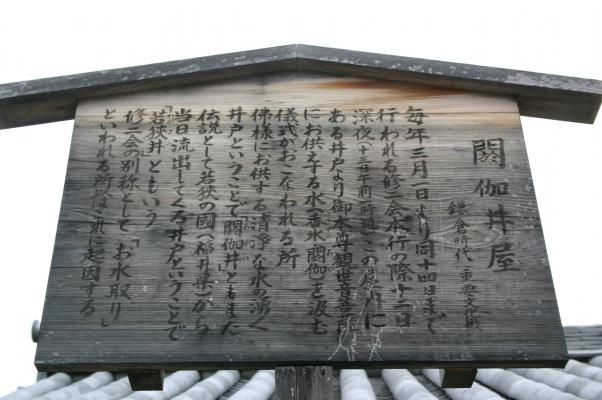 閼伽井屋
鎌倉時代 重要文化財
毎年三月一日より同十四日まで
行われる修二会本行の際十二日
深夜(十三日午前一時過)この屋内に
ある井戸より御本尊観世音菩薩
にお供えする水(香水・閼伽)を汲む
儀式がおこなわれる所
佛様にお供する清浄な水の湧く
井戸ということで「閼伽井」ともまた
伝説として若狭の國(福井県)から
当日流出してくる井戸ということで
「若狭井」ともいう
修二会の別称として「お水取り」
といわれる所はこれに起因する